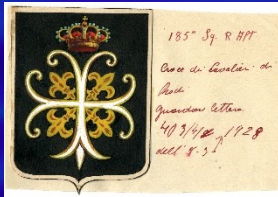 185ª Sq. R APT
Croce di Cavalieri di
Rodi
guardar lettera
403/4/ 1928
dell' 8-3